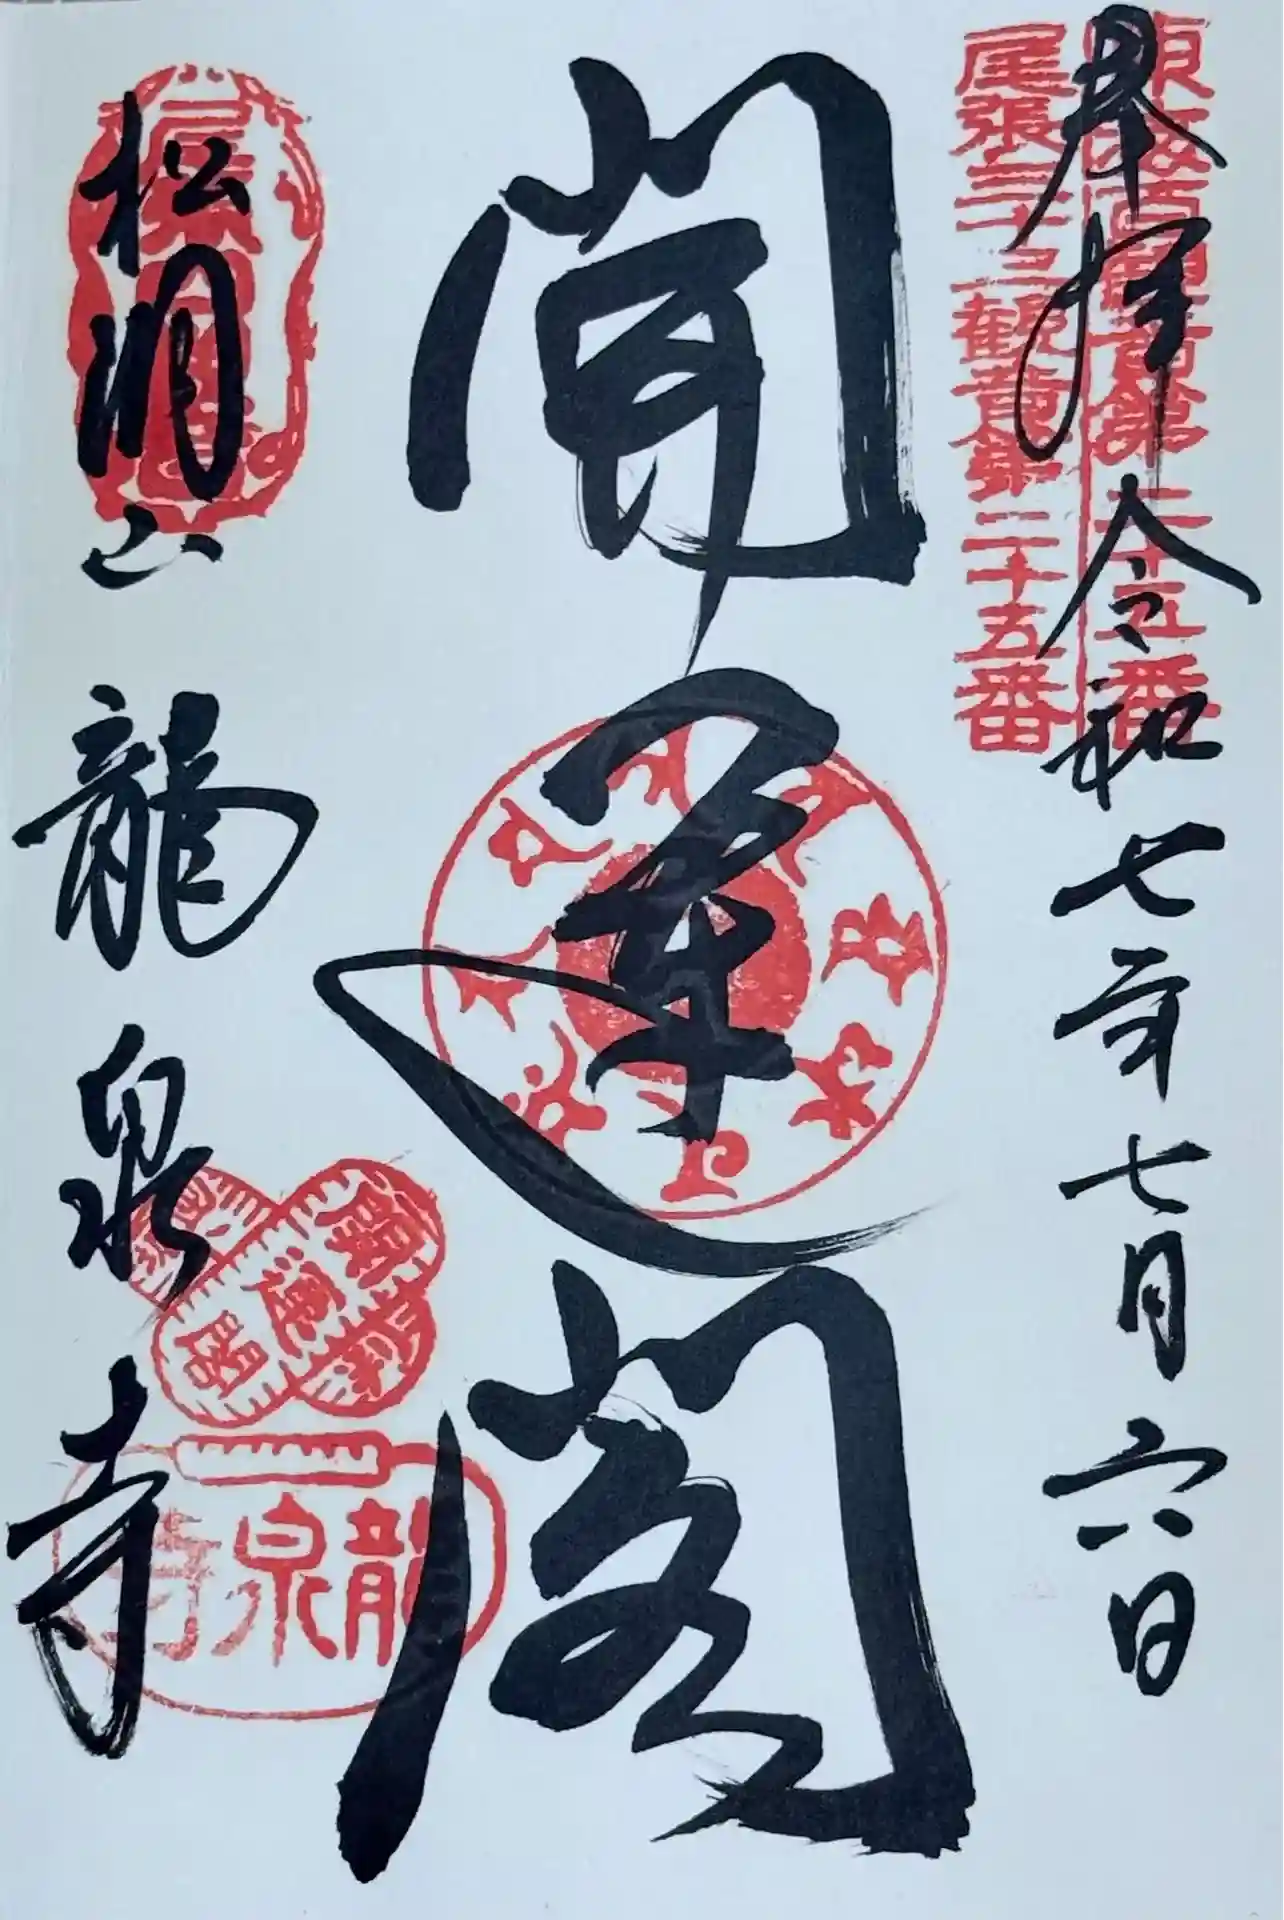 奉拝 令和七年七月六日
東海百観音第二十五番
尾張三十三観音第二十五番
開運閣
松洞山 龍泉寺
開運閣
龍泉寺